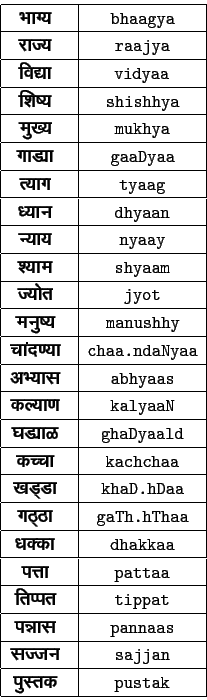 भाग्य bhaagya
राज्य raajya
विद्या vidyaa
शिष्य shishhya
मुख्य mukhya
गाड्या gaaDyaa
त्याग tyaag
ध्यान dhyaan
न्याय nyaay
श्याम shyaam
ज्योत jyot
मनुष्य manushhy
चांदण्या chaa.ndaNyaa
अभ्यास abhyaas
कल्याण kalyaaN
घड्याळ ghaDyaald
कच्चा kachchaa
खड्डा khaD.hDaa
गठ्ठा gaTh.hThaa
धक्का dhakkaa
पत्ता pattaa
तिप्पत tippat
पन्नास pannaas
सज्जन sajjan
पुस्तक pustak